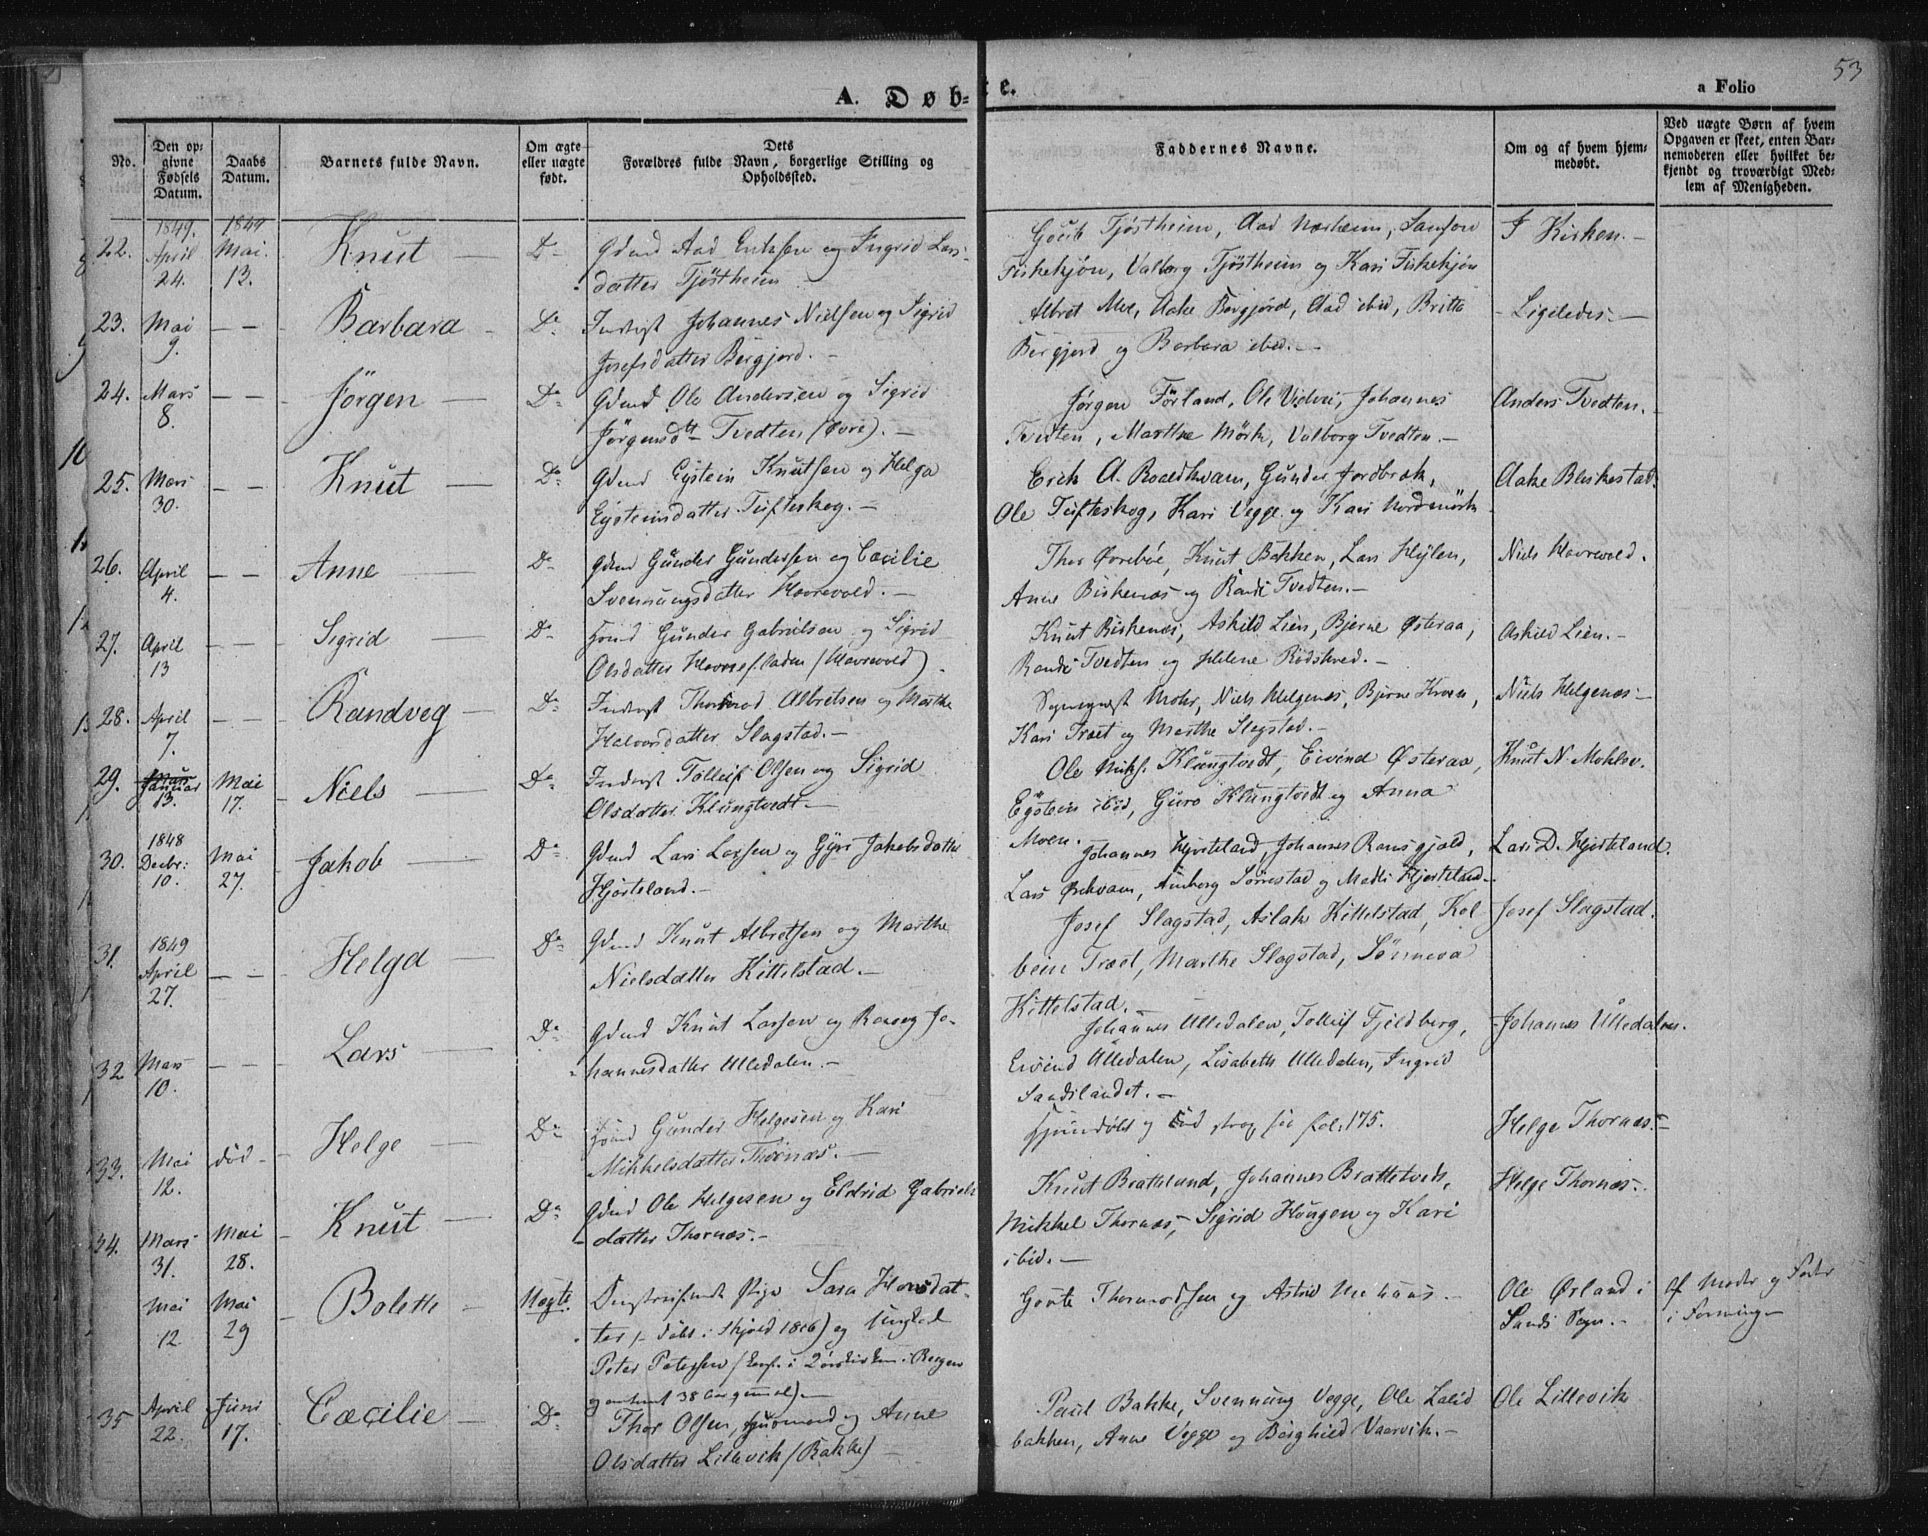 53
A. Døb-
te.
a Folio
No.
Den op-
givne
Fødsels
Datum.
Daabs
Datum.
Barnets fulde Navn.
Om ægte
eller uægte
født.
Dets
Forældres fulde Navn, borgerlige Stilling og
Opholdssted.
Faddernes Navne.
Om og af hvem hjem-
medøbt.
Ved uægte Børn af hvem
Opgaven er skeet, enten Bar-
nemoderen eller hvilket be-
kjendt og troværdigt Med-
lem af Menigheden.
22.
1849.
April
24.
1849
Mai
13.
Knut
Do
Gdmd Aad Eriksen og Ingrid Lars-
datter Tjöstheim
Tjöstheim, Aad Nærheim, Samson
Fiskekjön, Valborg Tjöstheim og Kari Fiskekjön
I Kirken.
23.
Mai
9.
Barbara
Do
Johannes Nielsen og Sigrid
Josefsdatter Bergjord.
Albret Moe, Aake Bergjord, Aad ibid, Britta
Bergjord og Barbara ibid.
Ligeledes.
24.
Mars
8.
Jörgen
Do
Gdmd Ole Andersen og Sigrid
Jörgensdtr Tvedten (övre).
Jörgen Förland, Ole Johannes
Tvedten, Marthe Mörk, Valborg Tvedten.
Anders Tvedten.
25.
Mars
30.
Knut
Do
Gdmd Eystein Knutsen og Helga
Eysteinsdatter Tufteskog.
Erick A. Roaldkvam, Gunder Jordbræk,
Ole Tufteskog, Kari Vegge og Kari Nordmörk
Aake Bleskestad.
26.
April
4.
Anne
Do
Gdmd Gunder Gundersen og Cæcilie
Svennungsdatter Havrevold.
Thor Öreböe, Knut Bakken, Lars Hylen,
Anne Birkenæs og Randi Tvedten.
Niels Havrevold.
27.
April
13
Sigrid
Do
Gunder Gabrielsen og Sigrid
Olsdatter (Havrevold).
Knut Birkenæs, Askild Lien, Bjerne Østeraa,
Randi Tvedten og Helene Rödskred.
Askild Lien.
28.
April
7.
Randveg
Do
Thormod Albretsen og Marthe
Halvorsdatter Slagstad.
Mohr, Niels Helgenæs, Bjerne
Kari Træet og Marthe Slagstad.
Niels Helgenæs
29.
Januar
13.
Mai
17.
Niels
Do
Tolleif Olsen og Sigrid
Olsdatter Klungtvedt
Ole Niks. Klungtvedt, Eivind Østeraa,
Eystein ibid, Guro Klungtvedt og Anna
Moen.
Knut N. Mehlsv.
30.
1848
Decbr:
10.
Mai
27.
Jakob
Do
Gdmd Lars Larsen og Gyri Jakobsdatter
Hjorteland.
Johannes Hjorteland, Johannes
Lars Ørekvam, Sørrestad og Madli Hjorteland
Lars D. Hjorteland.
31.
1849
April
27.
Helga
Do
Gdmd Knut Albretsen og Marthe
Nielsdatter Kittelstad.
Josef Slagstad, Aslak Kittelstad, Kol
bein Træet, Marthe Slagstad, Sönneva
Kittelstad.
Josef Slagstad.
32
Mars
10.
Lars
Do
Gdmd Knut Larsen og Jo-
hannesdatter Ulledalen.
Johannes Ulledalen, Tolleif Fjeldberg,
Eivind Ulledalen, Lisabeth Ulledalen, Ingrid
Sandslandet.
Johannes Ulledalen.
33.
Mai
12.
död
Helge
Do
Gunder Helgesen og Kari
Mikkelsdatter Thornæs.
Hjemdöbt og död strax see fol. 175.
Helge Thornæs.
34.
Mars
31.
Mai
28.
Knut
Do
Gdmd Ole Helgesen og Eldrid Gabriels
datter Thornæs.
Knut Bratlund, Johannes Brattetveit,
Mikkel Thornæs, Sigrid Hougen og Kari
ibid.
Helge Thornæs.
Mai
12.
Mai
29
Bolette
Uægte.
Pige Sara
ter (döbt i Skjold 1816) og Ungkarl
Peter Petersen i Bergen
omtrent 38 Aar gammel).
Goute Thormodsen og Astrid
Ole Ørland i
Sands Sogn.
af Moder og Fader
i Forening
35
April
22.
Juni
17.
Cæcilie
Do
Thor Olsen, og Anne
Olsdatter Lillevik (Bakke)
Paul Bakke, Svennung Vegge, Ole
bakken, Anne Vegge og Borghild Vaarvik.
Ole Lillevik